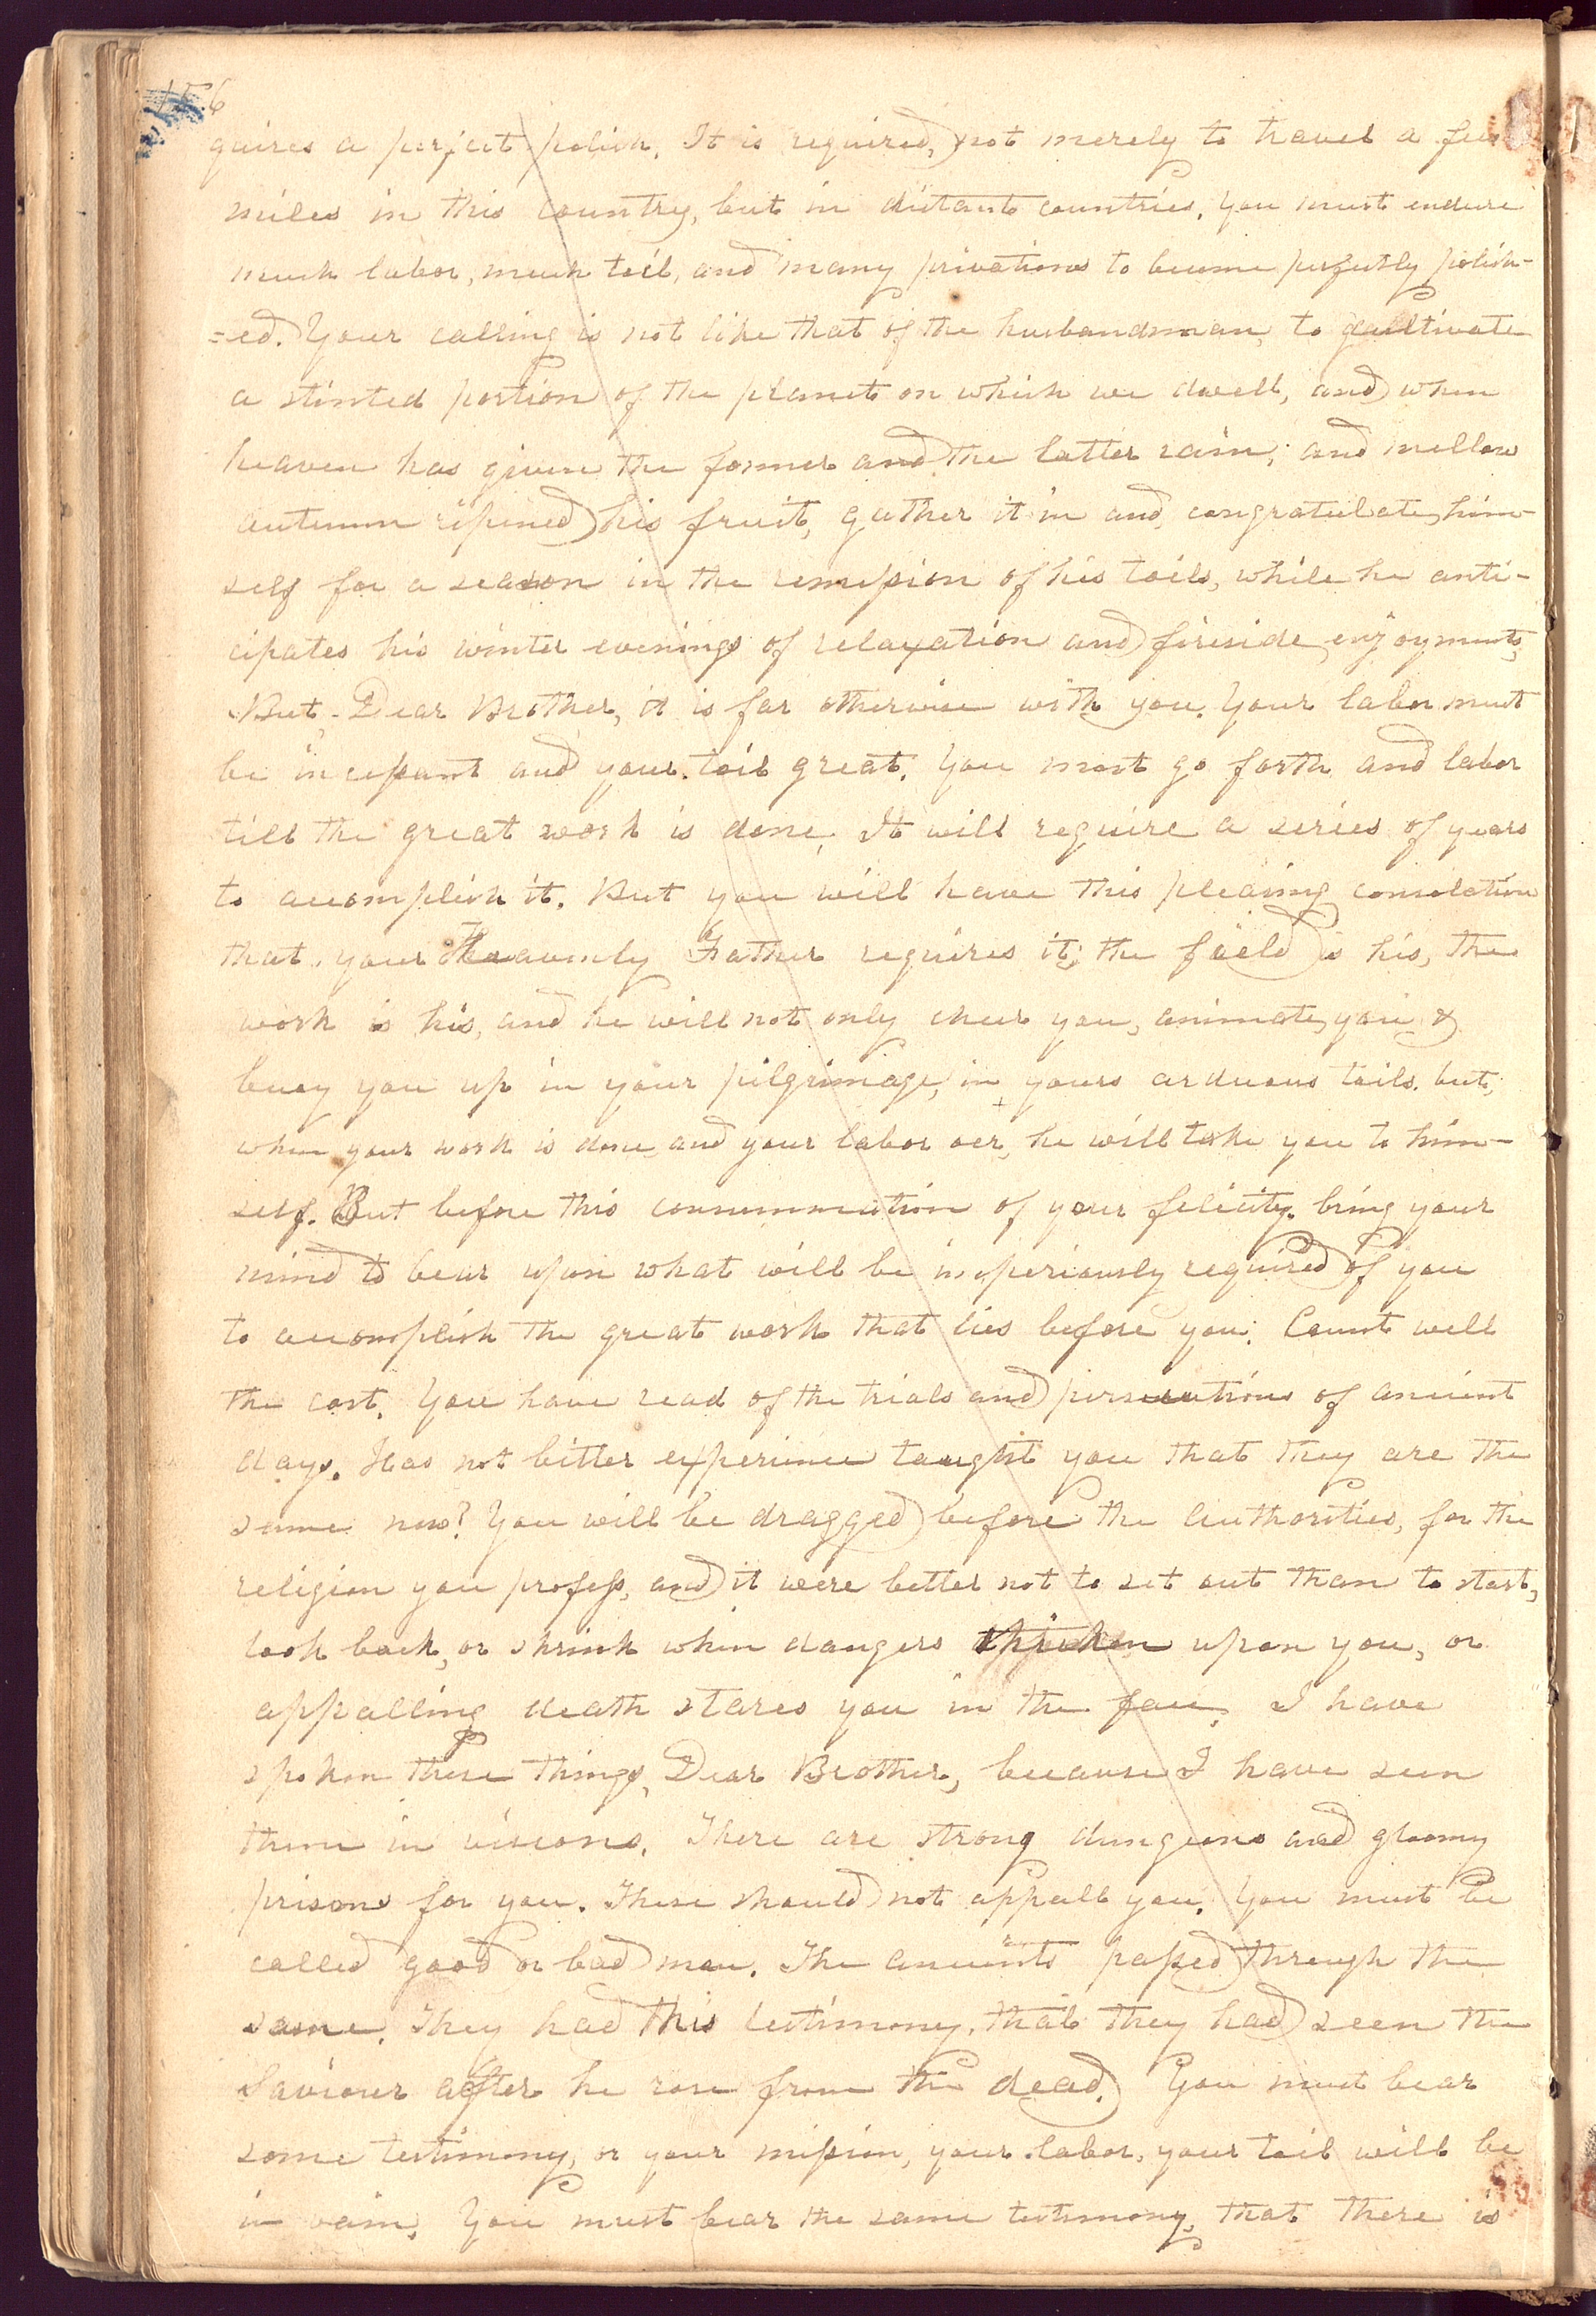 156
quires a perfect polish. It is required, not merely to travel a few
miles in this country, but in distant countries. You must endure
much labor, much toil, and many privations to become perfectly polish-
=ed. Your calling is not like that of the husbandman, to cultivate
a stinted portion of the planet on which we dwell, and when
heaven has given the former and the latter rain; and mellow
autumn ripened his fruit, gather it in and congratulate him-
self for a season in the remission of his toils, while he anti-
cipates his winter evenings of relaxation and fireside enjoyments,
But, Dear Brother, it is far otherwise with you. Your labor must
be incessant and your toil great. You must go forth and labor
till the great work is done. It will require a series of years
to accomplish it. But you will have this pleasing consolation
that your Heavenly Father requires it; the field is his, the
work is his, and he will not only cheer you, animate you &
buoy you up in your pilgrimage, in yours arduous toils. but,
when your work is done and your labor oer, he will take you to him-
self. But before this consummation of your felicity. bring your
mind to bear upon what will be imperiously required of you
to accomplish the great work that lies before you. Count well
the cost. You have read of the trials and persecutions of ancient
days. Has not bitter experience taught you that they are the
same now? You will be dragged before the authorities, for the
religion you profess, and it were better not to set out than to start,
look back, or shrink when dangers thicken upon you, or
appalling death stares you in the face. I have
spoken these things, Dear Brother, because I have seen
them in visions. There are strong dungeons and gloomy
prisons for you. These should not appall you. You must be
called good or bad man. The ancients passed through the
same. They had this testimony, that they had seen the
Saviour after he rose from the dead. You must bear
some testimony, or your mission, your labor, your toil will be
in vain. You must bear the same testimony, that there is